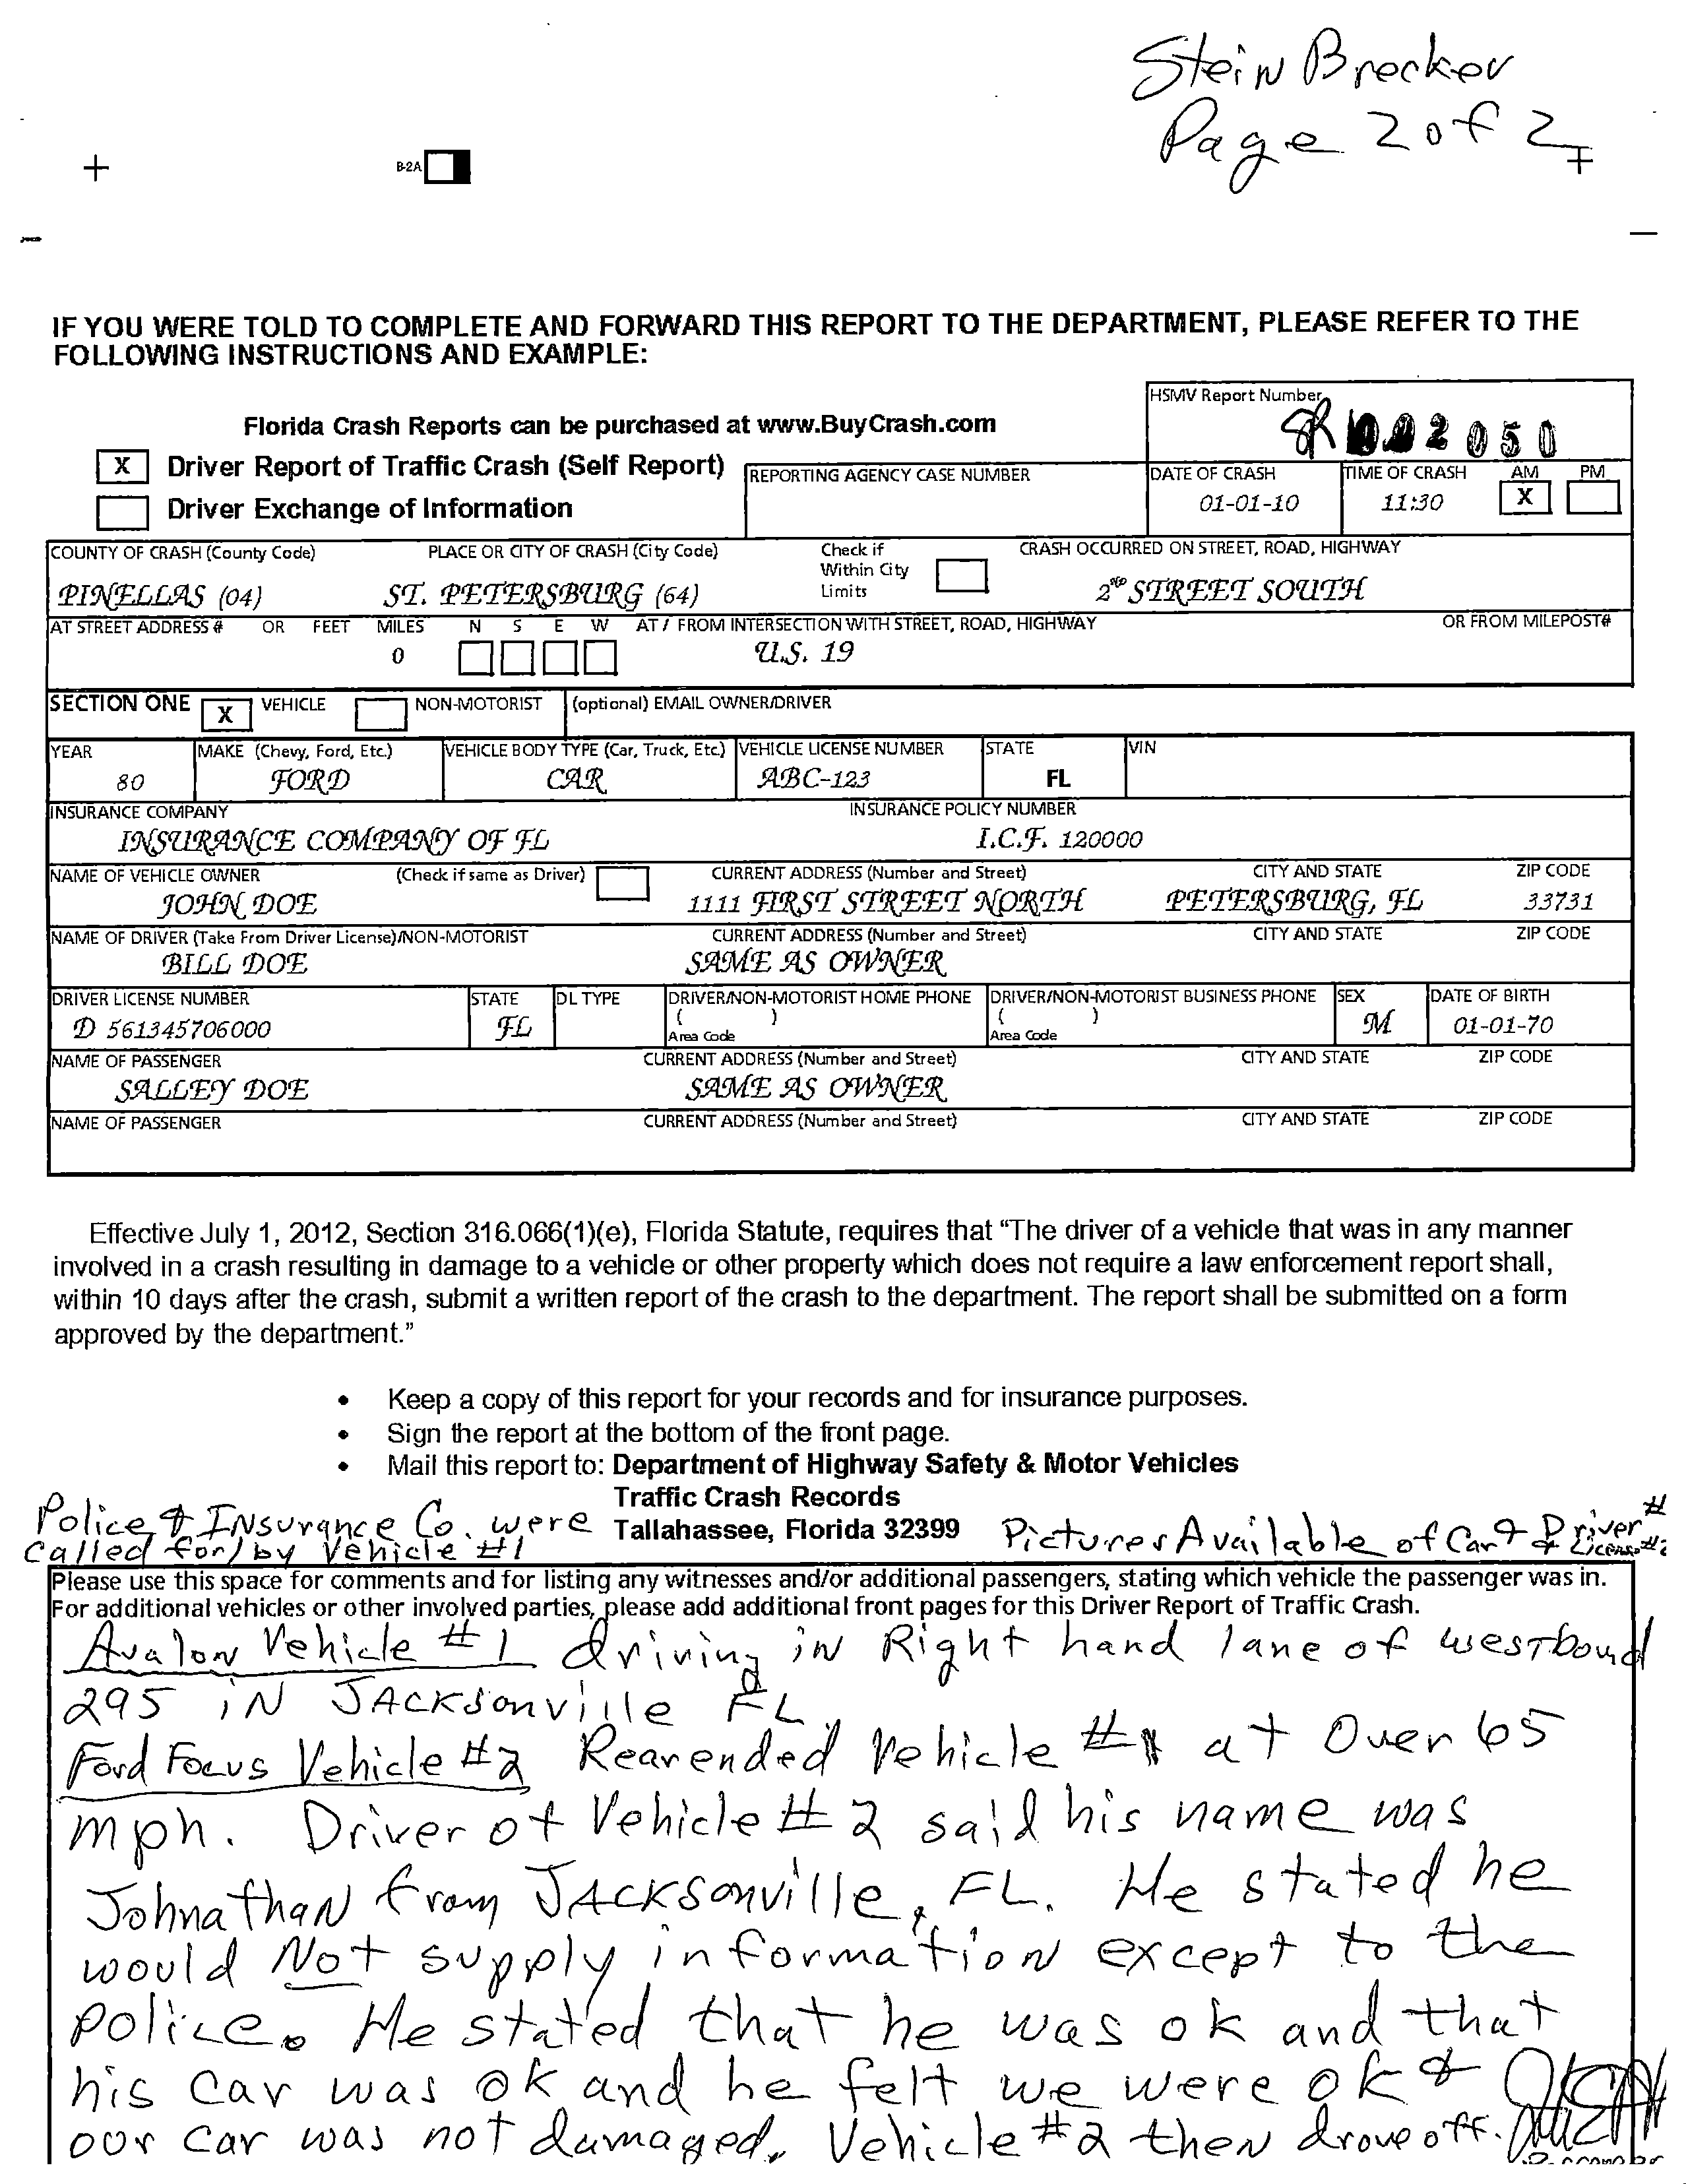 Stein Brecker
Page 2 of 2
B-2A
IF YOU WERE TOLD TO COMPLETE AND FORWARD THIS REPORT TO THE DEPARTMENT, PLEASE REFER TO THE
FOLLOWING INSTRUCTIONS AND EXAMPLE:
HSMV Report Number
002050
Florida Crash Reports can be purchased at www.BuyCrash.com
X Driver Report of Traffic Crash (Self Report)
Driver Exchange of Information
REPORTING AGENCY CASE NUMBER
DATE OF CRASH TIME OF CRASH AM PM
01-01-10 11:30 X
COUNTY OF CRASH (County Code) PLACE OR CITY OF CRASH (City Code) Check if Within City Limits CRASH OCCURRED ON STREET, ROAD, HIGHWAY
PINELLAS (04) ST. PETERSBURG (64) 2ND STREET SOUTH
AT STREET ADDRESS # OR FEET MILES N S E W AT / FROM INTERSECTION WITH STREET, ROAD, HIGHWAY OR FROM MILEPOST#
0 U.S. 19
SECTION ONE X VEHICLE NON-MOTORIST (optional) EMAIL OWNER/DRIVER
YEAR MAKE (Chevy, Ford, Etc.) VEHICLE BODY TYPE (Car, Truck, Etc.) VEHICLE LICENSE NUMBER STATE VIN
80 FORD CAR ABC-123 FL
INSURANCE COMPANY INSURANCE POLICY NUMBER
INSURANCE COMPANY OF FL I.C.F. 120000
NAME OF VEHICLE OWNER (Check if same as Driver) CURRENT ADDRESS (Number and Street) CITY AND STATE ZIP CODE
JOHN DOE 1111 FIRST STREET NORTH PETERSBURG, FL 33731
NAME OF DRIVER (Take From Driver License)/NON-MOTORIST CURRENT ADDRESS (Number and Street) CITY AND STATE ZIP CODE
BILL DOE SAME AS OWNER
DRIVER LICENSE NUMBER STATE DL TYPE DRIVER/NON-MOTORIST HOME PHONE DRIVER/NON-MOTORIST BUSINESS PHONE SEX DATE OF BIRTH
D 561345706000 FL ( ) ( ) M 01-01-70
Area Code Area Code
NAME OF PASSENGER CURRENT ADDRESS (Number and Street) CITY AND STATE ZIP CODE
SALLEY DOE SAME AS OWNER
NAME OF PASSENGER CURRENT ADDRESS (Number and Street) CITY AND STATE ZIP CODE
Effective July 1, 2012, Section 316.066(1)(e), Florida Statute, requires that “The driver of a vehicle that was in any manner
involved in a crash resulting in damage to a vehicle or other property which does not require a law enforcement report shall,
within 10 days after the crash, submit a written report of the crash to the department. The report shall be submitted on a form
approved by the department.”
• Keep a copy of this report for your records and for insurance purposes.
• Sign the report at the bottom of the front page.
• Mail this report to: Department of Highway Safety & Motor Vehicles
Traffic Crash Records
Tallahassee, Florida 32399
Police & Insurance Co. were
called for/by Vehicle #1
Pictures Available of Car & Driver #
License #2
Please use this space for comments and for listing any witnesses and/or additional passengers, stating which vehicle the passenger was in.
For additional vehicles or other involved parties, please add additional front pages for this Driver Report of Traffic Crash.
Avalon Vehicle #1 driving in Right hand lane of westbound
295 in Jacksonville FL.
Ford Focus Vehicle #2 Rearended Vehicle #1 at Over 65
mph. Driver of Vehicle #2 said his name was
Johnathan from Jacksonville, FL. He stated he
would Not supply information except to the
police. He stated that he was ok and that
his car was ok and he felt we were ok &
our car was not damaged. Vehicle #2 then drove off.